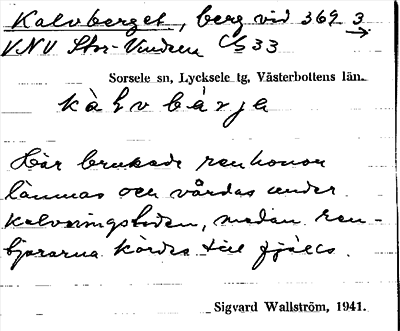 Kalvberget, berg vid 362 3
VNV Stor-Vindeln C/s 33
Sorsele sn, Lycksele tg, Västerbottens län.
kàlvbärja
Här brukade renhonor
lämnas och vårdas under
kalvningstiden, medan ren-
tjurarna kördes till fjälls.
Sigvard Wallström, 1941.